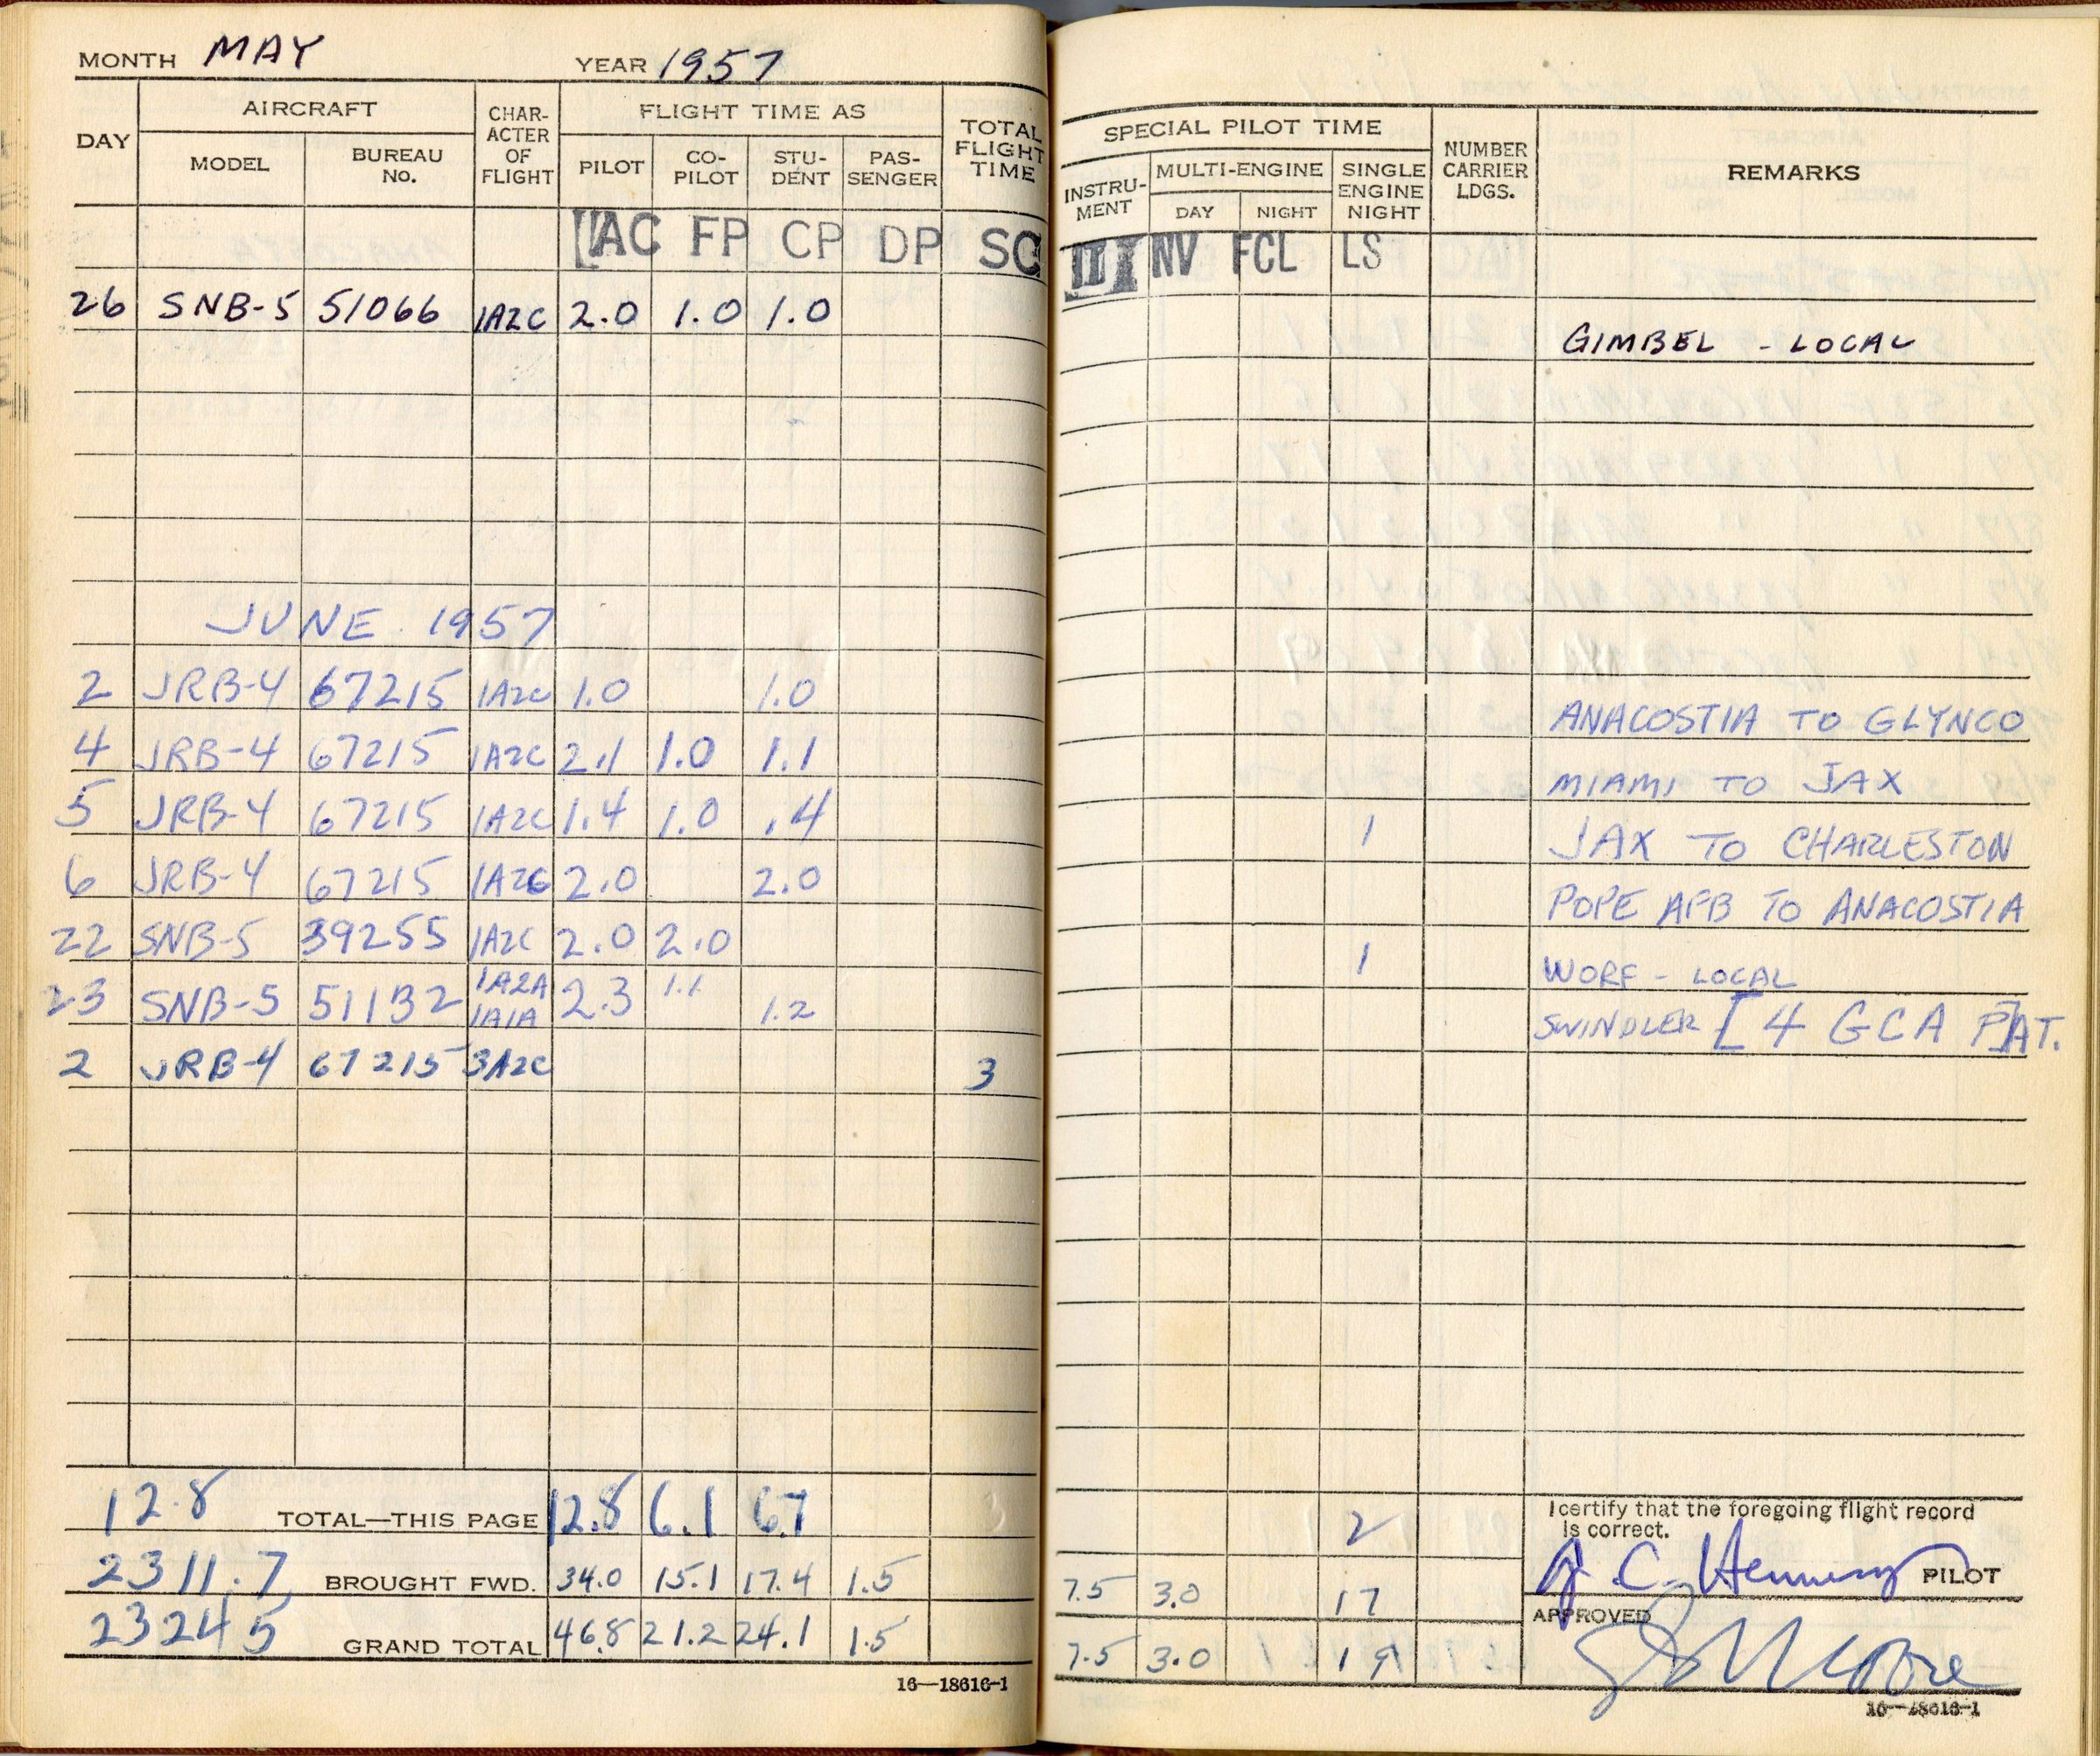 MONTH MAY YEAR 1957
DAY AIRCRAFT CHAR-ACTER OF FLIGHT FLIGHT TIME AS TOTAL FLIGHT TIME
MODEL BUREAU No. PILOT CO-PILOT STU-DENT PAS-SENGER
AC FP CP DP SC
26 SNB-5 51066 1A2C 2.0 1.0 1.0
JUNE 1957
2 JRB-4 67215 1A2C 1.0 1.0
4 JRB-4 67215 1A2C 2.1 1.0 1.1
5 JRB-4 67215 1A2C 1.4 1.0 .4
6 JRB-4 67215 1A2C 2.0 2.0
22 SNB-5 39255 1A2C 2.0 2.0
23 SNB-5 51132 1A2A 1A1A 2.3 1.1 1.2
2 JRB-4 67215 3A2C 3
12.8 TOTAL—THIS PAGE 12.8 6.1 6.7 3
2311.7 BROUGHT FWD. 34.0 15.1 17.4 1.5
2324.5 GRAND TOTAL 46.8 21.2 24.1 1.5
16—18616-1
SPECIAL PILOT TIME NUMBER CARRIER LDGS. REMARKS
INSTRU-MENT MULTI-ENGINE SINGLE ENGINE NIGHT
DAY NIGHT
NV FCL LS
GIMBEL - LOCAL
ANACOSTIA TO GLYNCO
MIAMI TO JAX
1 JAX TO CHARLESTON
POPE AFB TO ANACOSTIA
1 WORF - LOCAL
SWINDLER [4 GCA P]AT.
2
I certify that the foregoing flight record
is correct.
7.5 3.0 17
J. C. Hennessy PILOT
APPROVED
7.5 3.0 19
16—18616-1